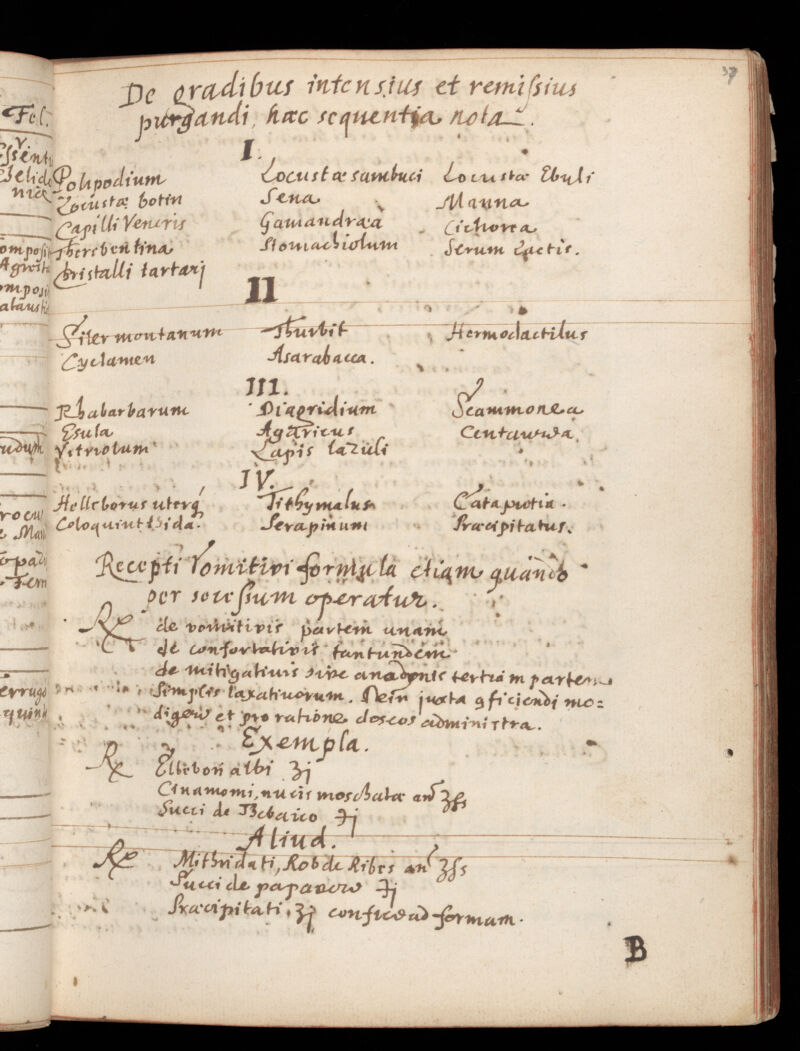 37
De gradibus intensius et remissius
purgandi, haec sequentia nota.
I.
Polipodium Locustæ sambuci Locustæ Ebuli
Locustæ botin Sena Manna
Capilli Veneris Gamandræa Cichorea
Therebentina Stomachiolum Serum Lactis.
Christalli tartarj
II
Siler montanum Thurbit Hermodactilus
Cyclamen Asarabacca.
III.
Rhabarbarum Diagridium Scammonea
Esula Agaricus Centaurea
Vitriolum Lapis lazuli
IV.
Helleborus uterq́ Tithymalus Cataputia.
Coloquinthida. Serapinum Præcipitatus.
Recepti Vomitivi formula etiam quando
per secessum operatur.
Rx de vomitivis partem unam
de confortativis tantundem
de mitigativis sive anodynis tertiam partem
Semplis laxativorum. Dein juxta conficiendi mo=
et pro ratione doseos administra.
Exempla.
Rx Ellebori albi ʒj
Cinamomi, nucis moschatæ an ʒſs
Succi de Thebaico ℈j
Aliud.
Rx Mithridati, Rob de Ribes an ʒſs
Succi de papavere ℈j
Præcipitati, ʒj confice ad formam.
B